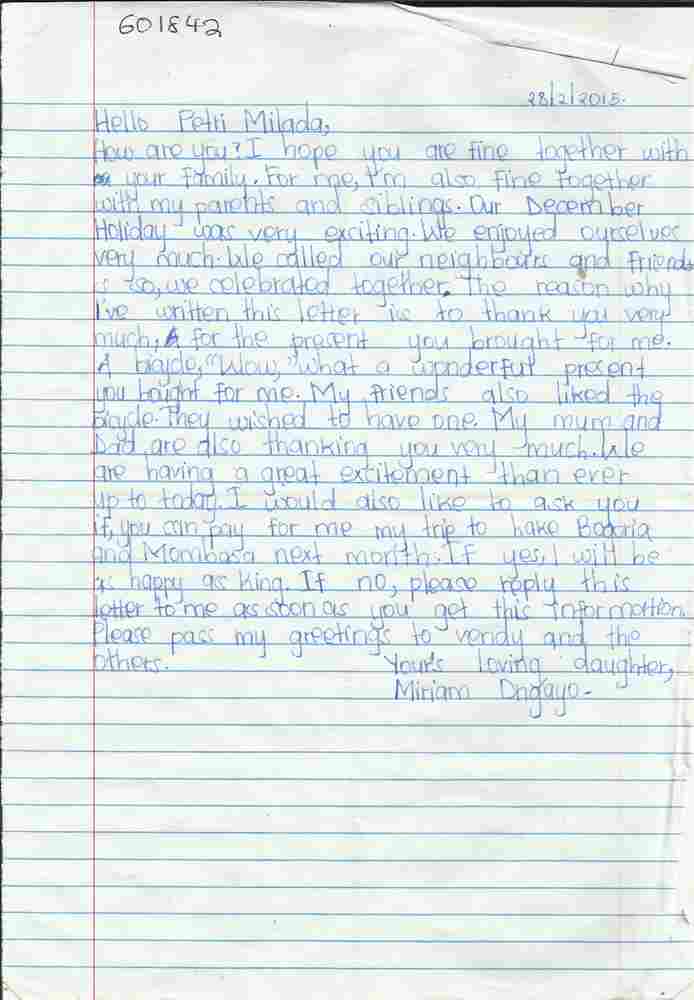 601842
28/2/2015.
Hello Petri Milada,
How are you? I hope you are fine together with
your family. For me, I'm also fine together
with my parents and siblings. Our December
Holiday was very exciting. We enjoyed ourselves
very much. We called our neighbours and friends
so, we celebrated together. The reason why
I've written this letter is to thank you very
much, for the present you brought for me.
A bicycle, "Wow," what a wonderful present
you bought for me. My friends also liked the
bicycle. They wished to have one. My mum and
Dad are also thanking you very much. We
are having a great excitement than ever
up to today. I would also like to ask you
if, you can pay for me my trip to hake Bogoria
and Mombasa next month. If yes, I will be
as happy as King. If no, please reply this
letter to me as soon as you get this information.
Please pass my greetings to vendy and the
others. Your's loving daughter,
Miriam